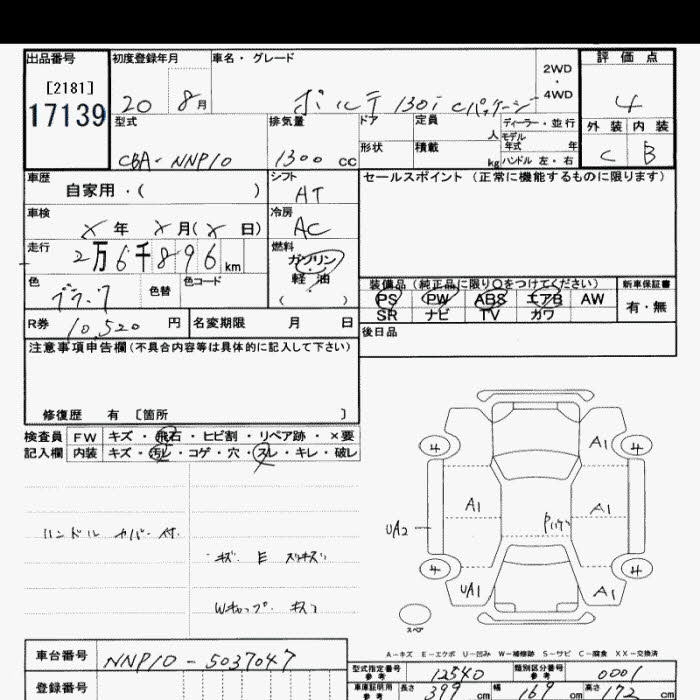 出品番号 初度登録年月 車名・グレード 2WD・4WD 評価点
[2181]
17139 20 8月 ポルテ 130i Cパッケージ 4
型式 排気量 ドア 定員 人 ディーラー・並行 外装 内装
モデル年式 年
CBA-NNP10 1300 cc 形状 積載 kg ハンドル 左・右 C B
車歴 シフト セールスポイント (正常に機能するものに限ります)
自家用・( ) AT
車検 冷房
X 年 X 月(X 日) AC
走行 燃料
2万6千896 km ガソリン
軽油
( )
色 色替 色コード 装備品 (純正品に限り○をつけてください) 新車保証書
PS PW ABS エアB AW 有・無
SR ナビ TV カワ
R券 10,520 円 名変期限 月 日 後日品
注意事項申告欄(不具合内容等は具体的に記入して下さい)
修復歴 有 [箇所 ]
検査員 FW キズ・飛石・ヒビ割・リペア跡・×要
記入欄 内装 キズ・汚レ・コゲ・穴・スレ・キレ・破レ
ハンドル カバー付
Wキャップ キズ
4 A1 4
A1 A1
UA2
4 4
UA1 A1
スペア
A-キズ E-エクボ U-凹み W-補修跡 S-サビ C-腐食 XX-交換済
車台番号 NNP10-5037047
型式指定番号 参考 12540 類別区分番号 参考 0001
登録番号 車庫証明用 参考 長さ 399 cm 幅 169 cm 高さ 172 cm